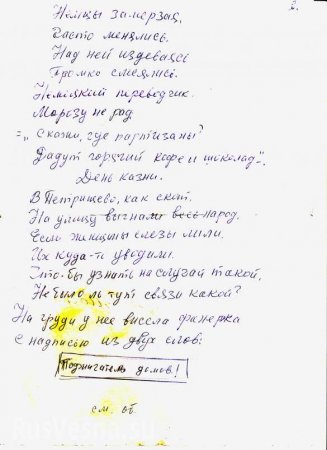 2.
Немцы замерзая,
Часто менялись.
Над ней издеваясь
Громко смеялись.
Немецкий переводчик.
Морозу не рад
= „Скажи, где партизаны?
Дадут горячий кофе и шоколад".
День казни.
В Петрищево, как скот.
На улицу выгнали весь народ.
Если женщины слезы лили.
Их куда-то уводили.
Что-бы узнать на случай такой,
Не было ль тут связи какой?
На груди у нее висела фанерка
С надписью из двух слов:
Поджигатель домов!
см. об.
RusVesna.su